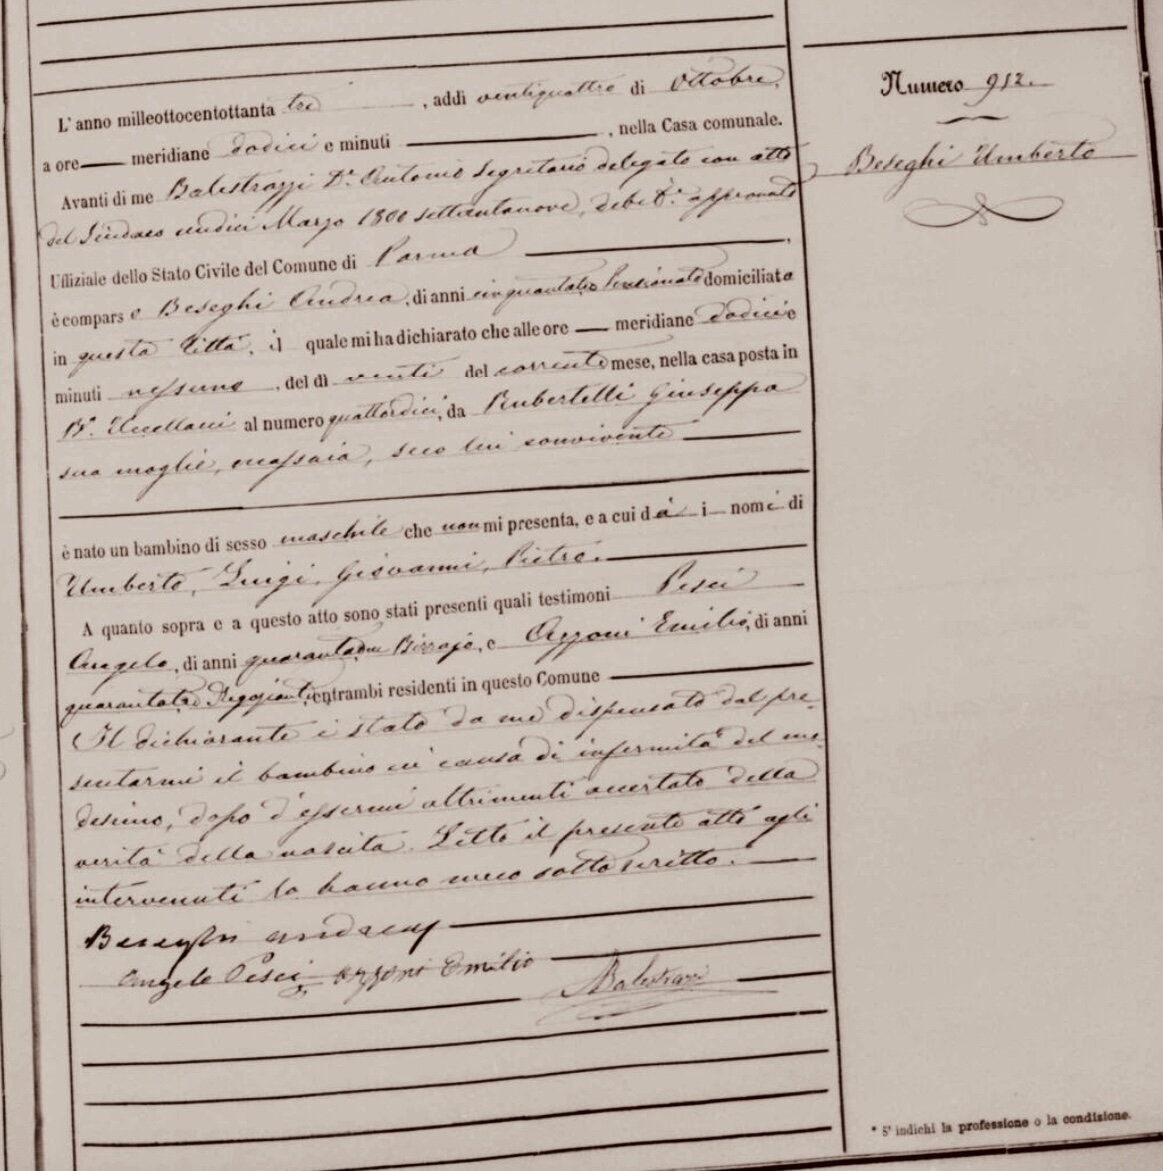 Numero 912.
Beseghi Umberto
L'anno milleottocentottanta tre, addi ventiquattro di Ottobre,
a ore — meridiane dodici e minuti —, nella Casa comunale.
Avanti di me Balestrazzi Dr. Antonio Segretario delegato con atto
del Sindaco undici Marzo 1800 settantanove, debit.e approvato
Uffiziale dello Stato Civile del Comune di Parma —,
è comparso Beseghi Andrea, di anni cinquantatre Pensionato domiciliato
in questa Città, il quale mi ha dichiarato che alle ore — meridiane dodici e
minuti nessuno, del dì venti del corrente mese, nella casa posta in
Bo. Uccellacci al numero quattordici, da Rubertelli Giuseppa
sua moglie, massaia, seco lui convivente —
è nato un bambino di sesso maschile che non mi presenta, e a cui dà i nomi di
Umberto, Luigi, Giovanni, Pietro. —
A quanto sopra e a questo atto sono stati presenti quali testimoni Pesci
Angelo, di anni quarantadue, e Azzoni Emilio, di anni
quarantatre, entrambi residenti in questo Comune —
Il dichiarante è stato da me dispensato dal pre-
sentarmi il bambino in causa di infermità del me-
desimo, dopo d'essermi altrimenti accertato della
verità della nascita. Letto il presente atto agli
intervenuti lo hanno meco sottoscritto. —
Beseghi Andrea
Angelo Pesci Azzoni Emilio
ABalestrazzi
* S'indichi la professione o la condizione.